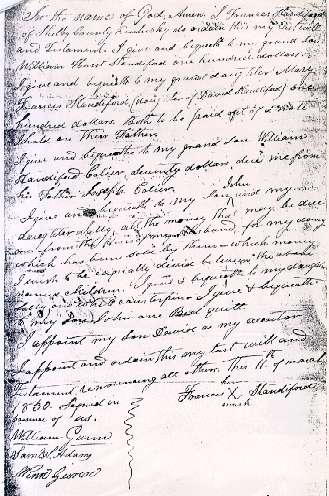 In the name of God, Amen. I Frances Standiford
of Shelby County Kentucky do ordain this my last will
and Testament. I give and bequeath to my grand son
William Hurst Standiford one hundred dollars. I
give and bequeath to my grand daughter Mary
Frances Standiford (daughter of David Standiford) one
hundred dollars. Both to be paid
their Father
I give and bequeath to my grand son William
Standiford Collier, Seventy dollars, due me from
his Father Joseph Collier.
I give and bequeath to my son John and my
daughter all the money that may be due
me from the bond, for my
which has been sold by them which money
I wish to be equally divided between the above
named children. I give & bequeath to my daughter
counterpane I give & bequeath
to my son John one Bed quilt
I appoint my son David as my executor
I appoint and ordain this my last will and
Testament renouncing all others. This 11th of march
1850. Signed in
presence of us.
her
Frances X Standiford
mark
William Gunn
Saml S. Adams